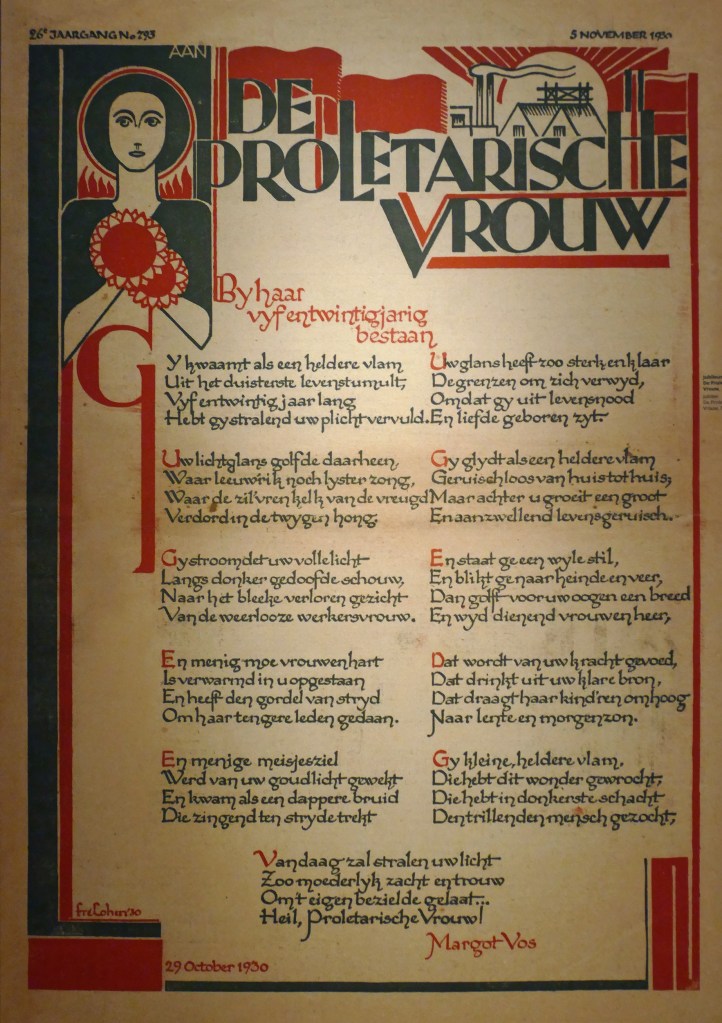 26e JAARGANG No. 793
5 NOVEMBER 1930
AAN
DE
PROLETARISCHE
VROUW
By haar
vyfentwintigjarig
bestaan
Gy kwaamt als een heldere vlam
Uit het duisterste levenstumult;
Vyfentwintig jaar lang
Hebt gy stralend uw plicht vervuld.
Uw lichtglans golfde daarheen,
Waar leeuwrik noch lyster zong,
Waar de zilvren kelk van de vreugd
Verdord in de twygen hong.
Gy stroomdet uw volle licht
Langs donker gedoofde schouw,
Naar het bleeke verloren gezicht
Van de weerlooze werkersvrouw.
En menig moe vrouwenhart
Is verwarmd in u opgestaan
En heeft den gordel van stryd
Om haar tengere leden gedaan.
En menige meisjesziel
Werd van uw goudlicht gewekt
En kwam als een dappere bruid
Die zingend ten stryde trekt
Uw glans heeft zoo sterk en klaar
De grenzen om zich verwyd,
Omdat gy uit levensnood
En liefde geboren zyt.
Gy glydt als een heldere vlam
Geruischloos van huis tot huis;
Maar achter u groeit een groot
En aanzwellend levensgeruisch.
En staat ge een wyle stil,
En blikt ge naar heinde en veer,
Dan golft voor uw oogen een breed
En wyd dienend vrouwenheer,
Dat wordt van uw kracht gevoed,
Dat drinkt uit uw klare bron,
Dat draagt haar kind'ren omhoog
Naar lente en morgenzon.
Gy kleine, heldere vlam,
Die hebt dit wonder gewrocht;
Die hebt in donkerste schacht
Den trillenden mensch gezocht;
Vandaag zal stralen uw licht
Zoo moederlyk zacht en trouw
Om 't eigen bezielde gelaat...
Heil, Proletarische Vrouw!
Margot Vos
fré Cohen '30
29 October 1930